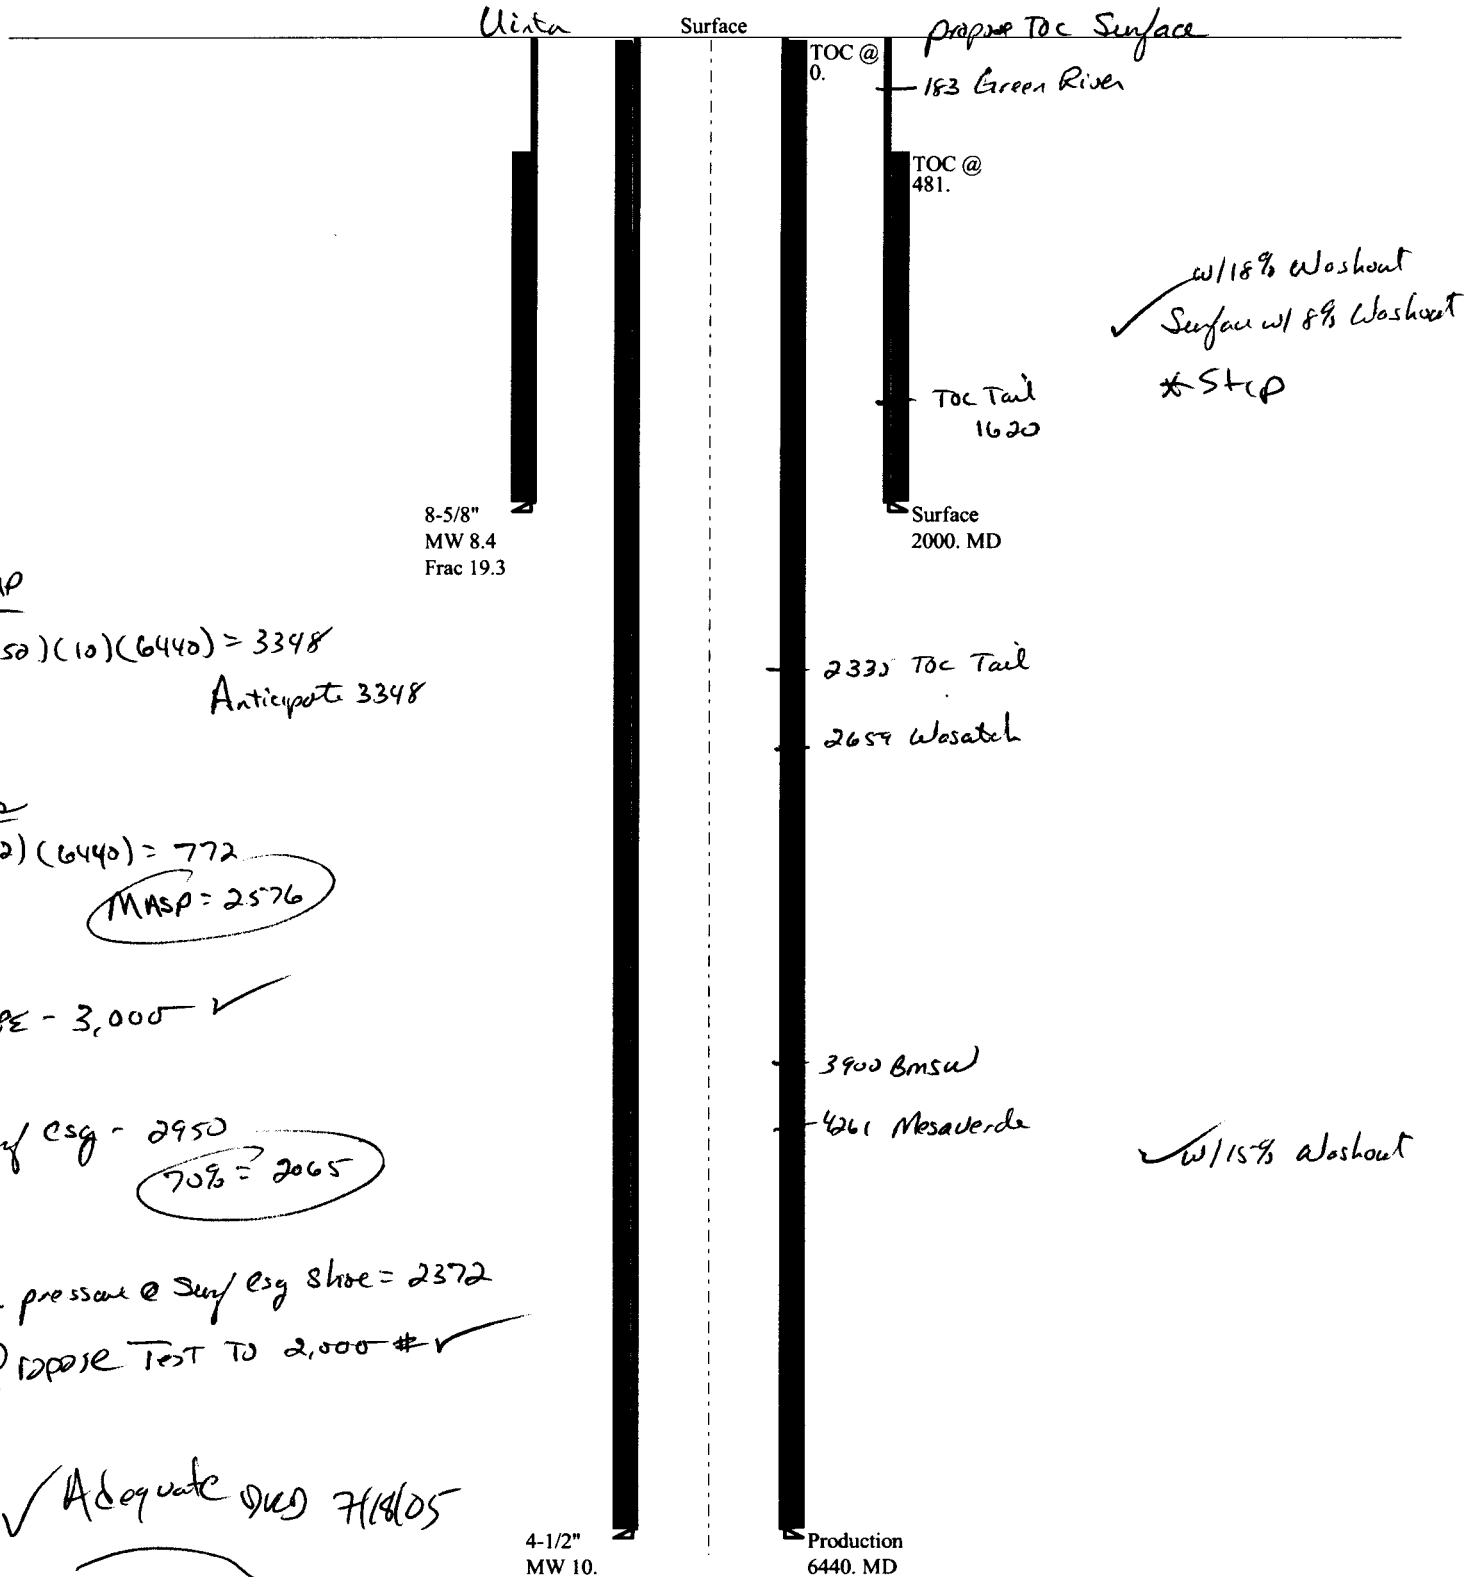 Uinta
Surface
propose TOC Surface
TOC @
0.
183 Green River
TOC @
481.
w/18% Washout
Surface w/ 8% Washout
* Stip
TOC Tail
1620
8-5/8"
MW 8.4
Frac 19.3
Surface
2000. MD
)(10)(6440) = 3348
Anticipate 3348
2335 TOC Tail
2659 Wasatch
2)(6440) = 772
MASP = 2576
- 3,000 ✓
3900 BMSW
4261 Mesaverde
csg - 2950
70% = 2065
✓ w/15% Washout
pressure @ Surf csg shoe = 2372
Propose Test To 2,000 # ✓
✓ Adequate DKD 7/18/05
4-1/2"
MW 10.
Production
6440. MD